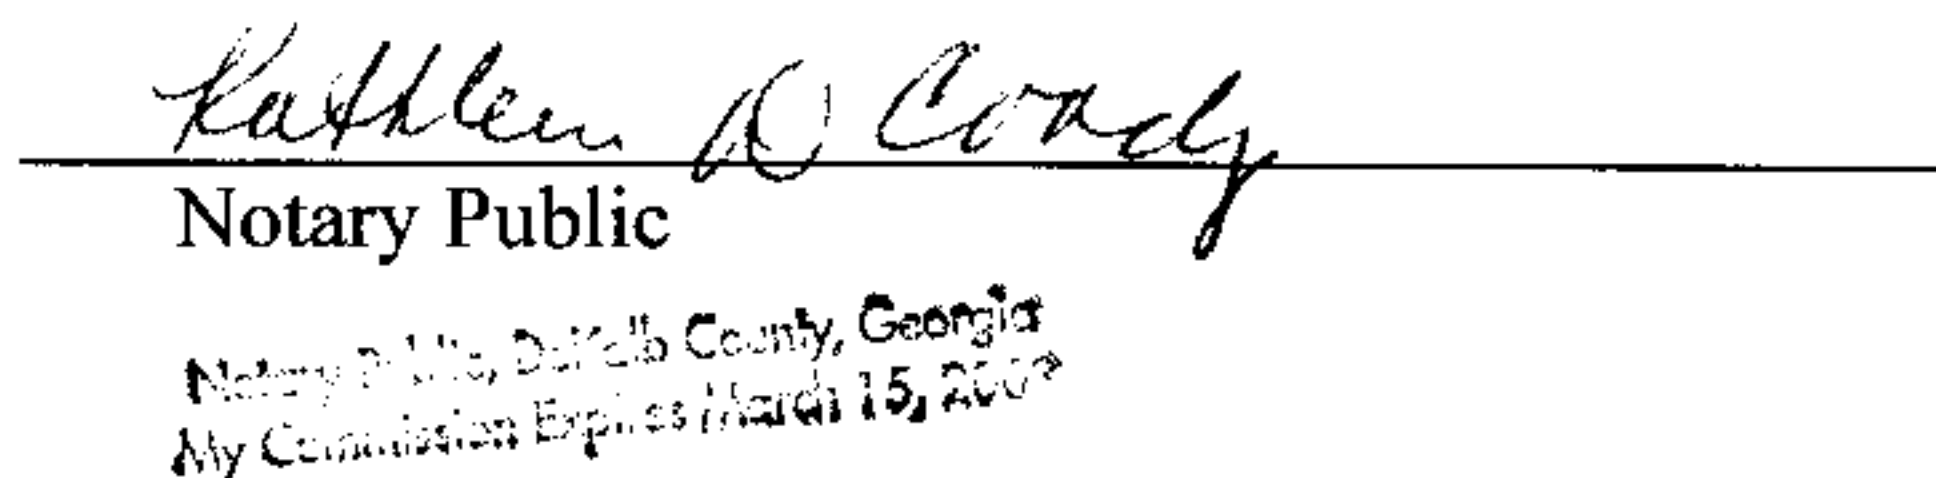 Kathleen D Coady
Notary Public
Notary Public, DeKalb County, Georgia
My Commission Expires March 15,